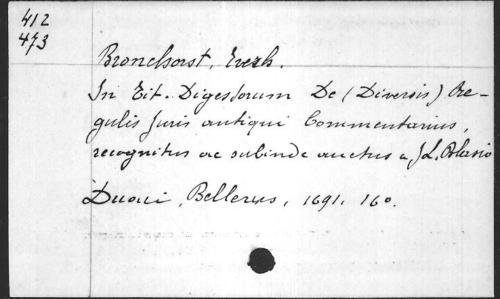 412
473
Bronchorst, Everh.
In Tit. Digestorum De (Diversis) Re-
gulis Juris antiqui Commentarius,
recognitus ac subinde auctus a J. L. Blasio
Duaci, Bellerus, 1691. 16o.